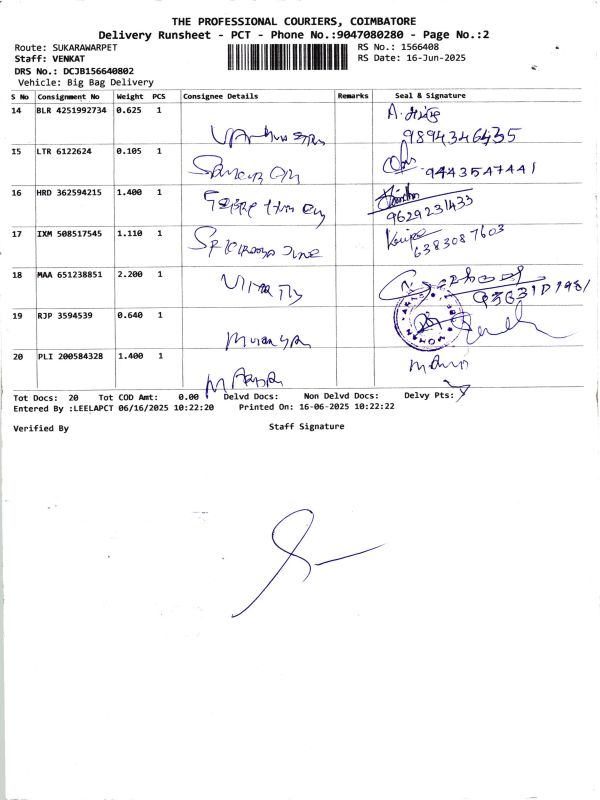 THE PROFESSIONAL COURIERS, COIMBATORE
Delivery Runsheet - PCT - Phone No.:9047080280 - Page No.:2
Route: SUKARAWARPET
RS No.: 1566408
Staff: VENKAT
RS Date: 16-Jun-2025
DRS No.: DCJB156640802
Vehicle: Big Bag Delivery
S No Consignment No Weight PCS Consignee Details Remarks Seal & Signature
14 BLR 4251992734 0.625 1
9894346435
15 LTR 6122624 0.105 1
9443547441
16 HRD 362594215 1.400 1
9629231433
17 IXM 508517545 1.110 1
6383087603
18 MAA 651238851 2.200 1
19 RJP 3594539 0.640 1
20 PLI 200584328 1.400 1
Tot Docs: 20 Tot COD Amt: 0.00 Delvd Docs: Non Delvd Docs: Delvy Pts:
Entered By :LEELAPCT 06/16/2025 10:22:20 Printed On: 16-06-2025 10:22:22
Verified By Staff Signature